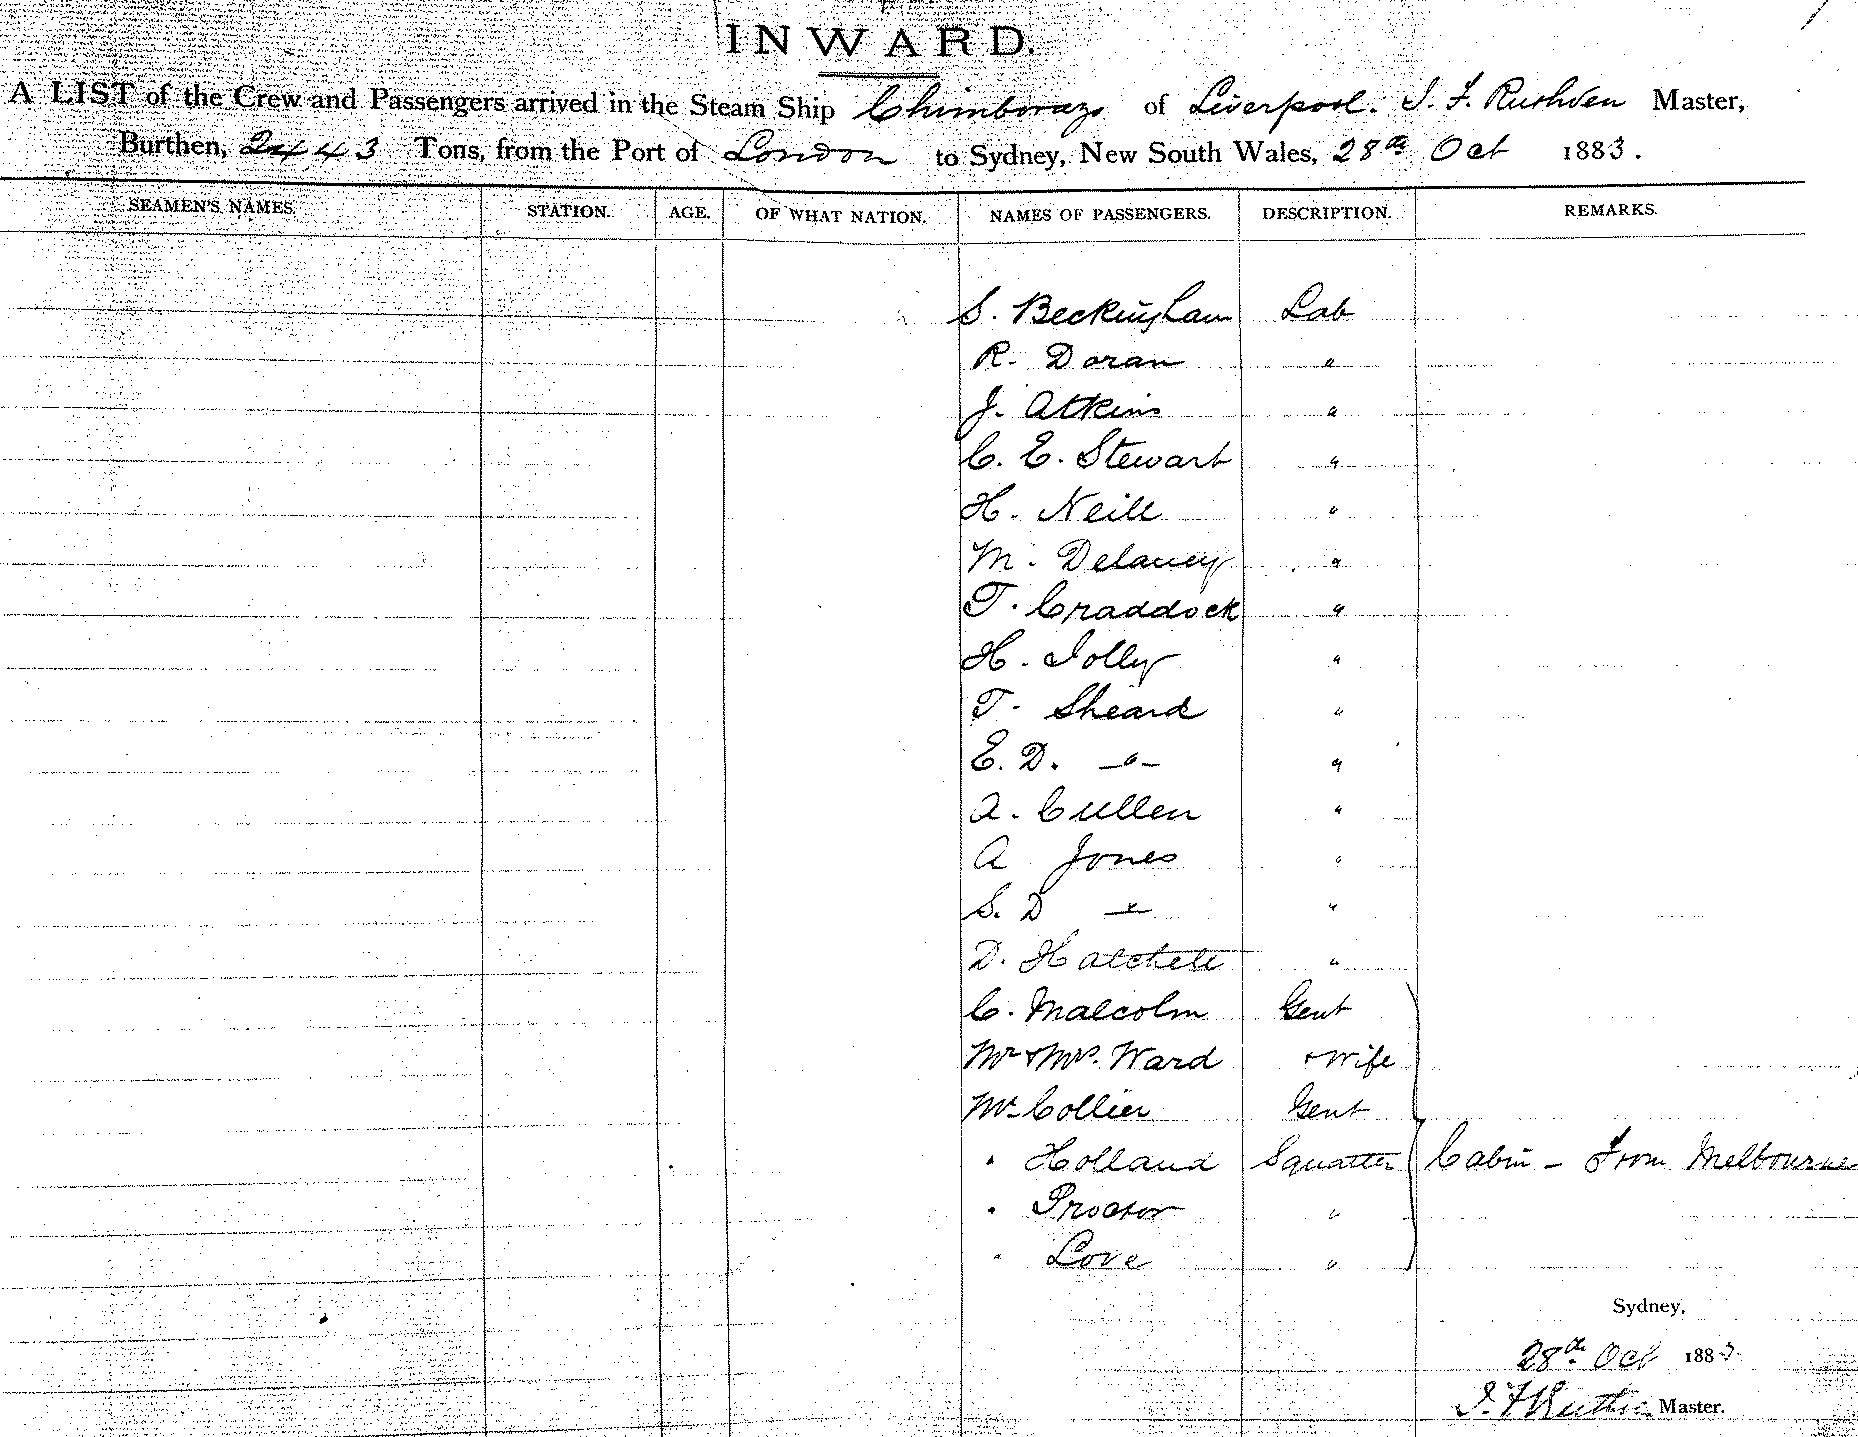 INWARD.
A LIST of the Crew and Passengers arrived in the Steam Ship Chimborazo of Liverpool. J. F. Ruthven Master,
Burthen, 2443 Tons, from the Port of London to Sydney, New South Wales, 28th Oct 1883.
SEAMEN'S NAMES. STATION. AGE. OF WHAT NATION. NAMES OF PASSENGERS. DESCRIPTION. REMARKS.
S. Beckingham Lab
R. Doran "
J. Atkins "
C. E. Stewart "
H. Neill "
M. Delaney "
T. Craddock "
H. Jolly "
T. Sheard "
E. D. —"— "
A. Cullen "
A Jones "
S. D —"— "
D. Hatchett "
C. Malcolm Gent
Mr & Mrs. Ward & Wife
Mr Collier Gent
" Holland Squatter Cabin - From Melbourne
" Proctor "
" Love "
Sydney,
28th Oct 1883
J. F. Ruthven Master.